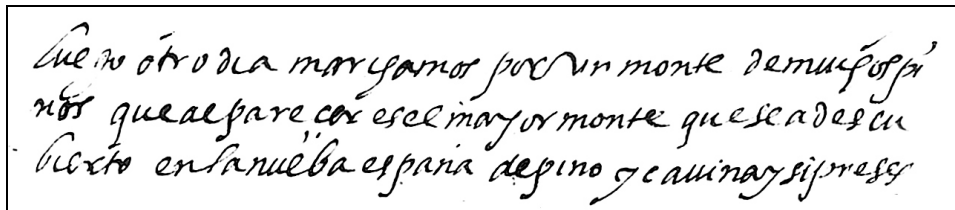 luego otro dia marchamos por un monte de muchos pi
nos que al parecer es el mayor monte que se a descu
bierto en la nueba españa de pino y savina y sipreses